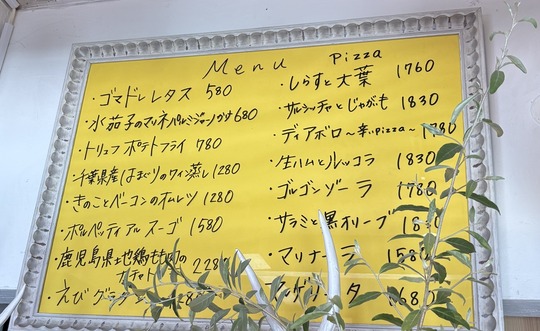 Menu
・ゴマドレレタス 580
・水茄子のマリネパルミジャーノがけ 680
・トリュフポテトフライ 780
・千葉県産はまぐりのワイン蒸し 1280
・きのことベーコンのオムレツ 1280
・ポルペッティ アル スーゴ 1580
・鹿児島県産地鶏もも肉の
カチャトーラ 2280
・えびグラタン
Pizza
・しらすと大葉 1760
・サルシッチャとじゃがも 1830
・ディアボロ〜辛いpizza〜
・生ハムとルッコラ 1830
・ゴルゴンゾーラ 1780
・サラミと黒オリーブ
・マリナーラ 1580
・マルゲリータ 1680